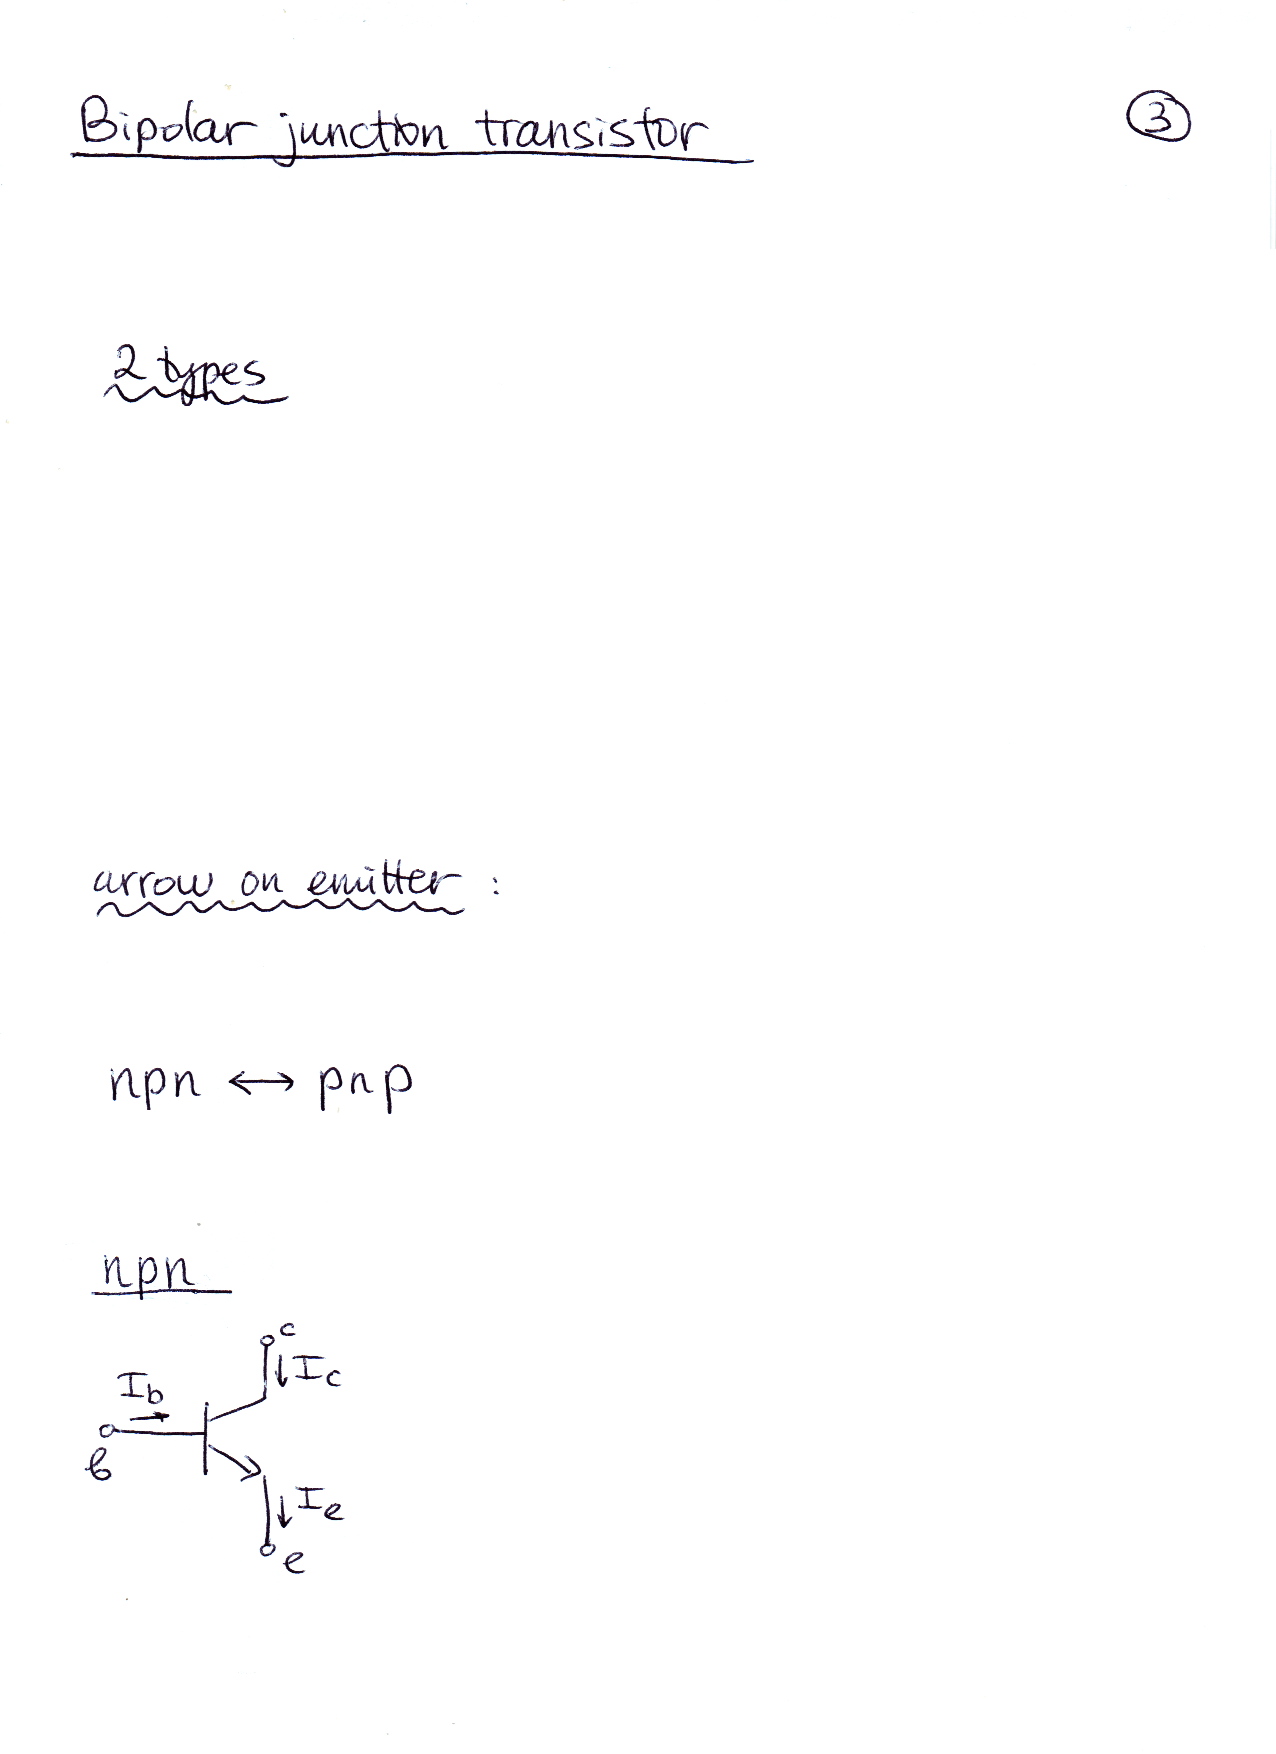 Bipolar junction transistor
3
2 types
arrow on emitter :
npn ↔ pnp
npn
c
Ic
Ib
b
Ie
e